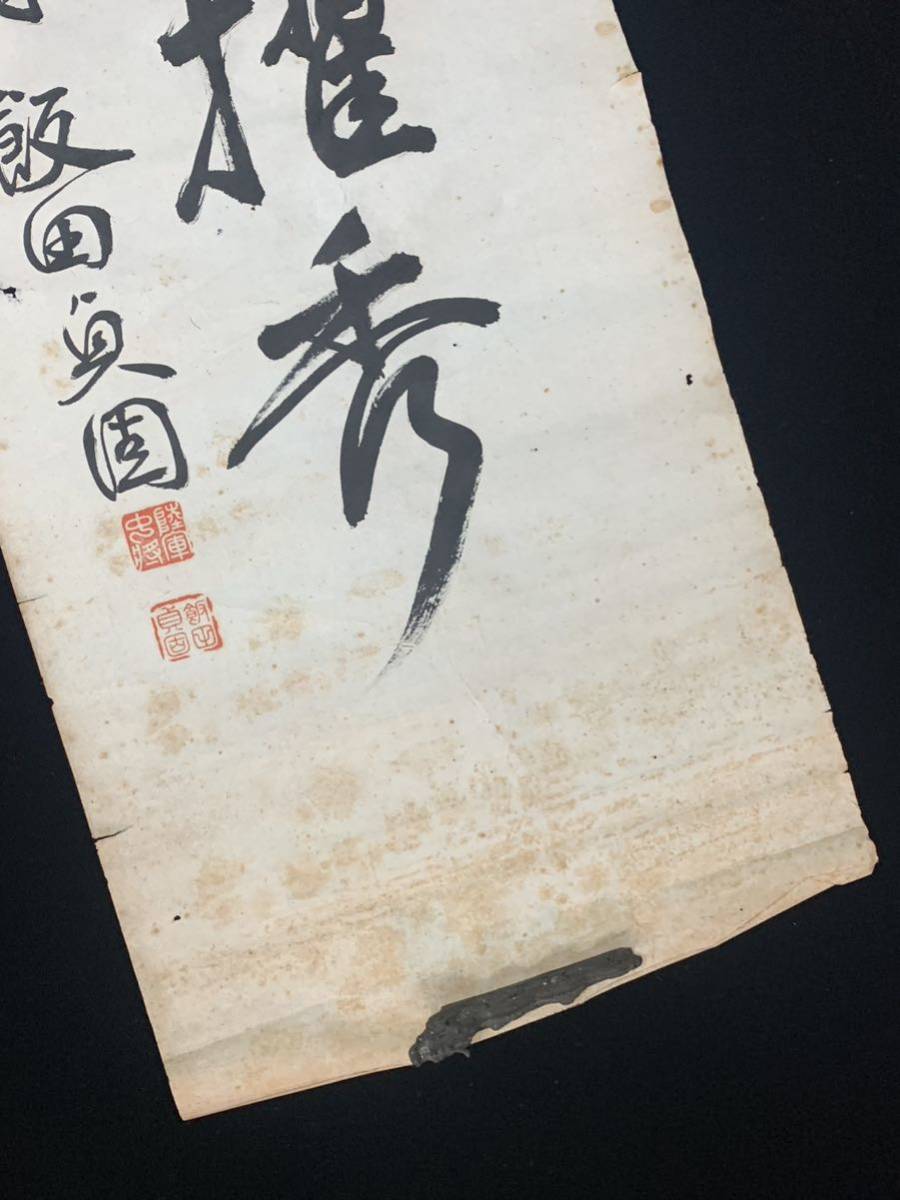 擢秀
飯田貞固
陸軍中将
飯田貞固